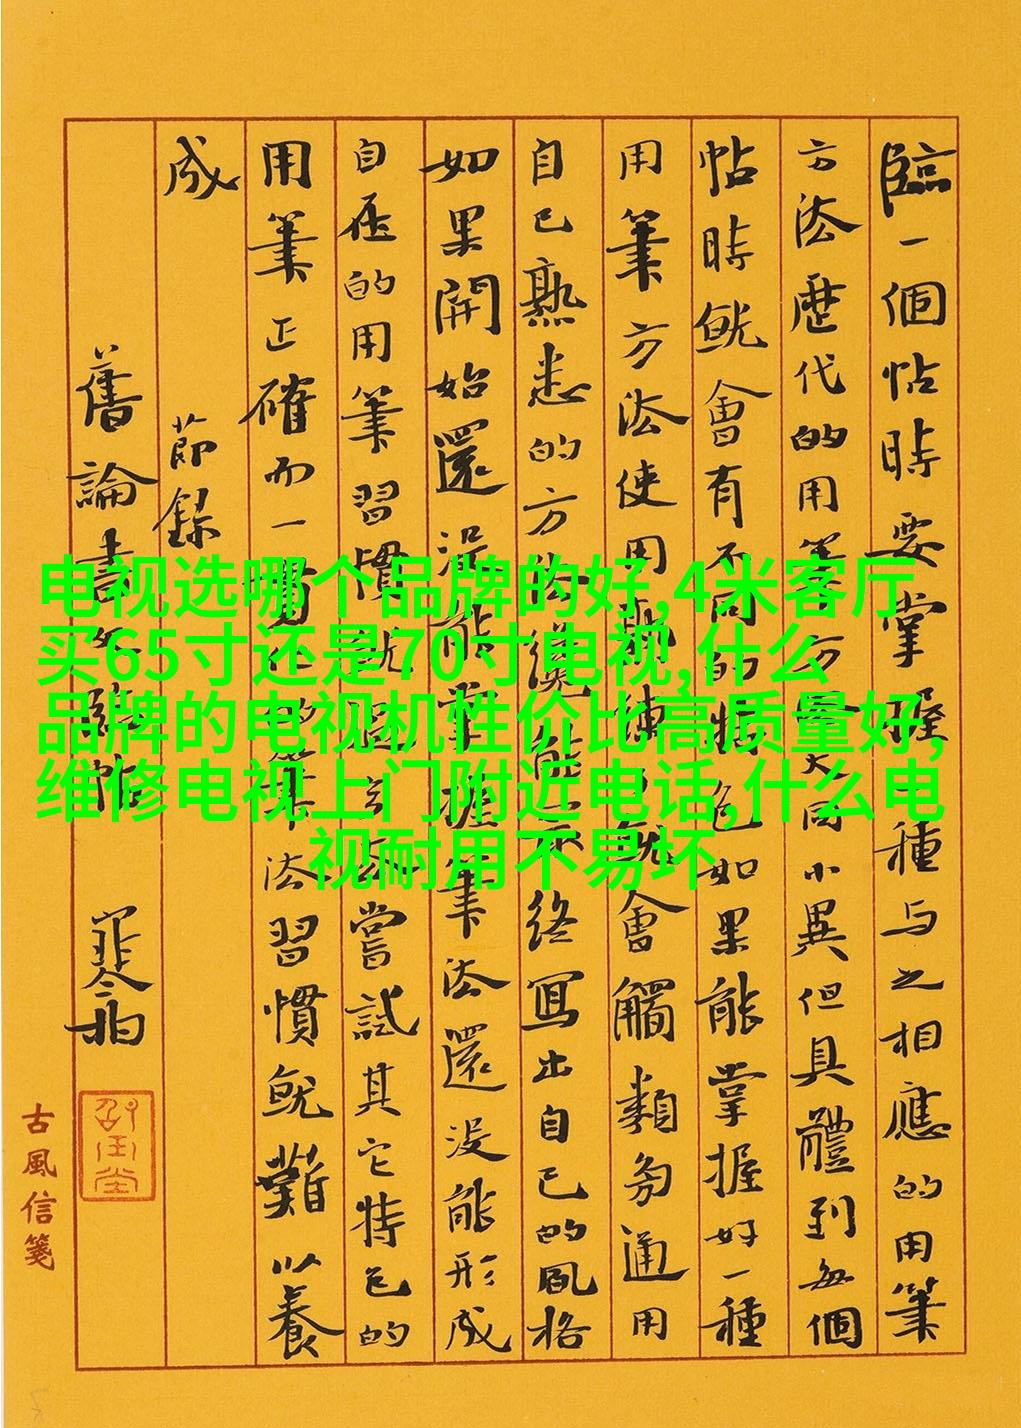 臨一個帖時要掌握種与之相應的用筆
方法歷代的用筆方大同小異但具體到每個
帖時就會有不同的特色如果能掌握好一種
用筆方法使用熟練了就會觸類旁通用
自己熟悉的方法纔能終寫出自己的風格
如果開始還没能掌握筆法還没能形成
自在的用筆習慣就去嘗試其它特色的
用筆正確而一筆法習慣就難以養
成 節録
舊論書臨帖
古風信箋
电视选哪个品牌的好,4米客厅
买65寸还是70寸电视,什么
品牌的电视机性价比高质量好,
维修电视上门附近电话,什么电
视耐用不易坏